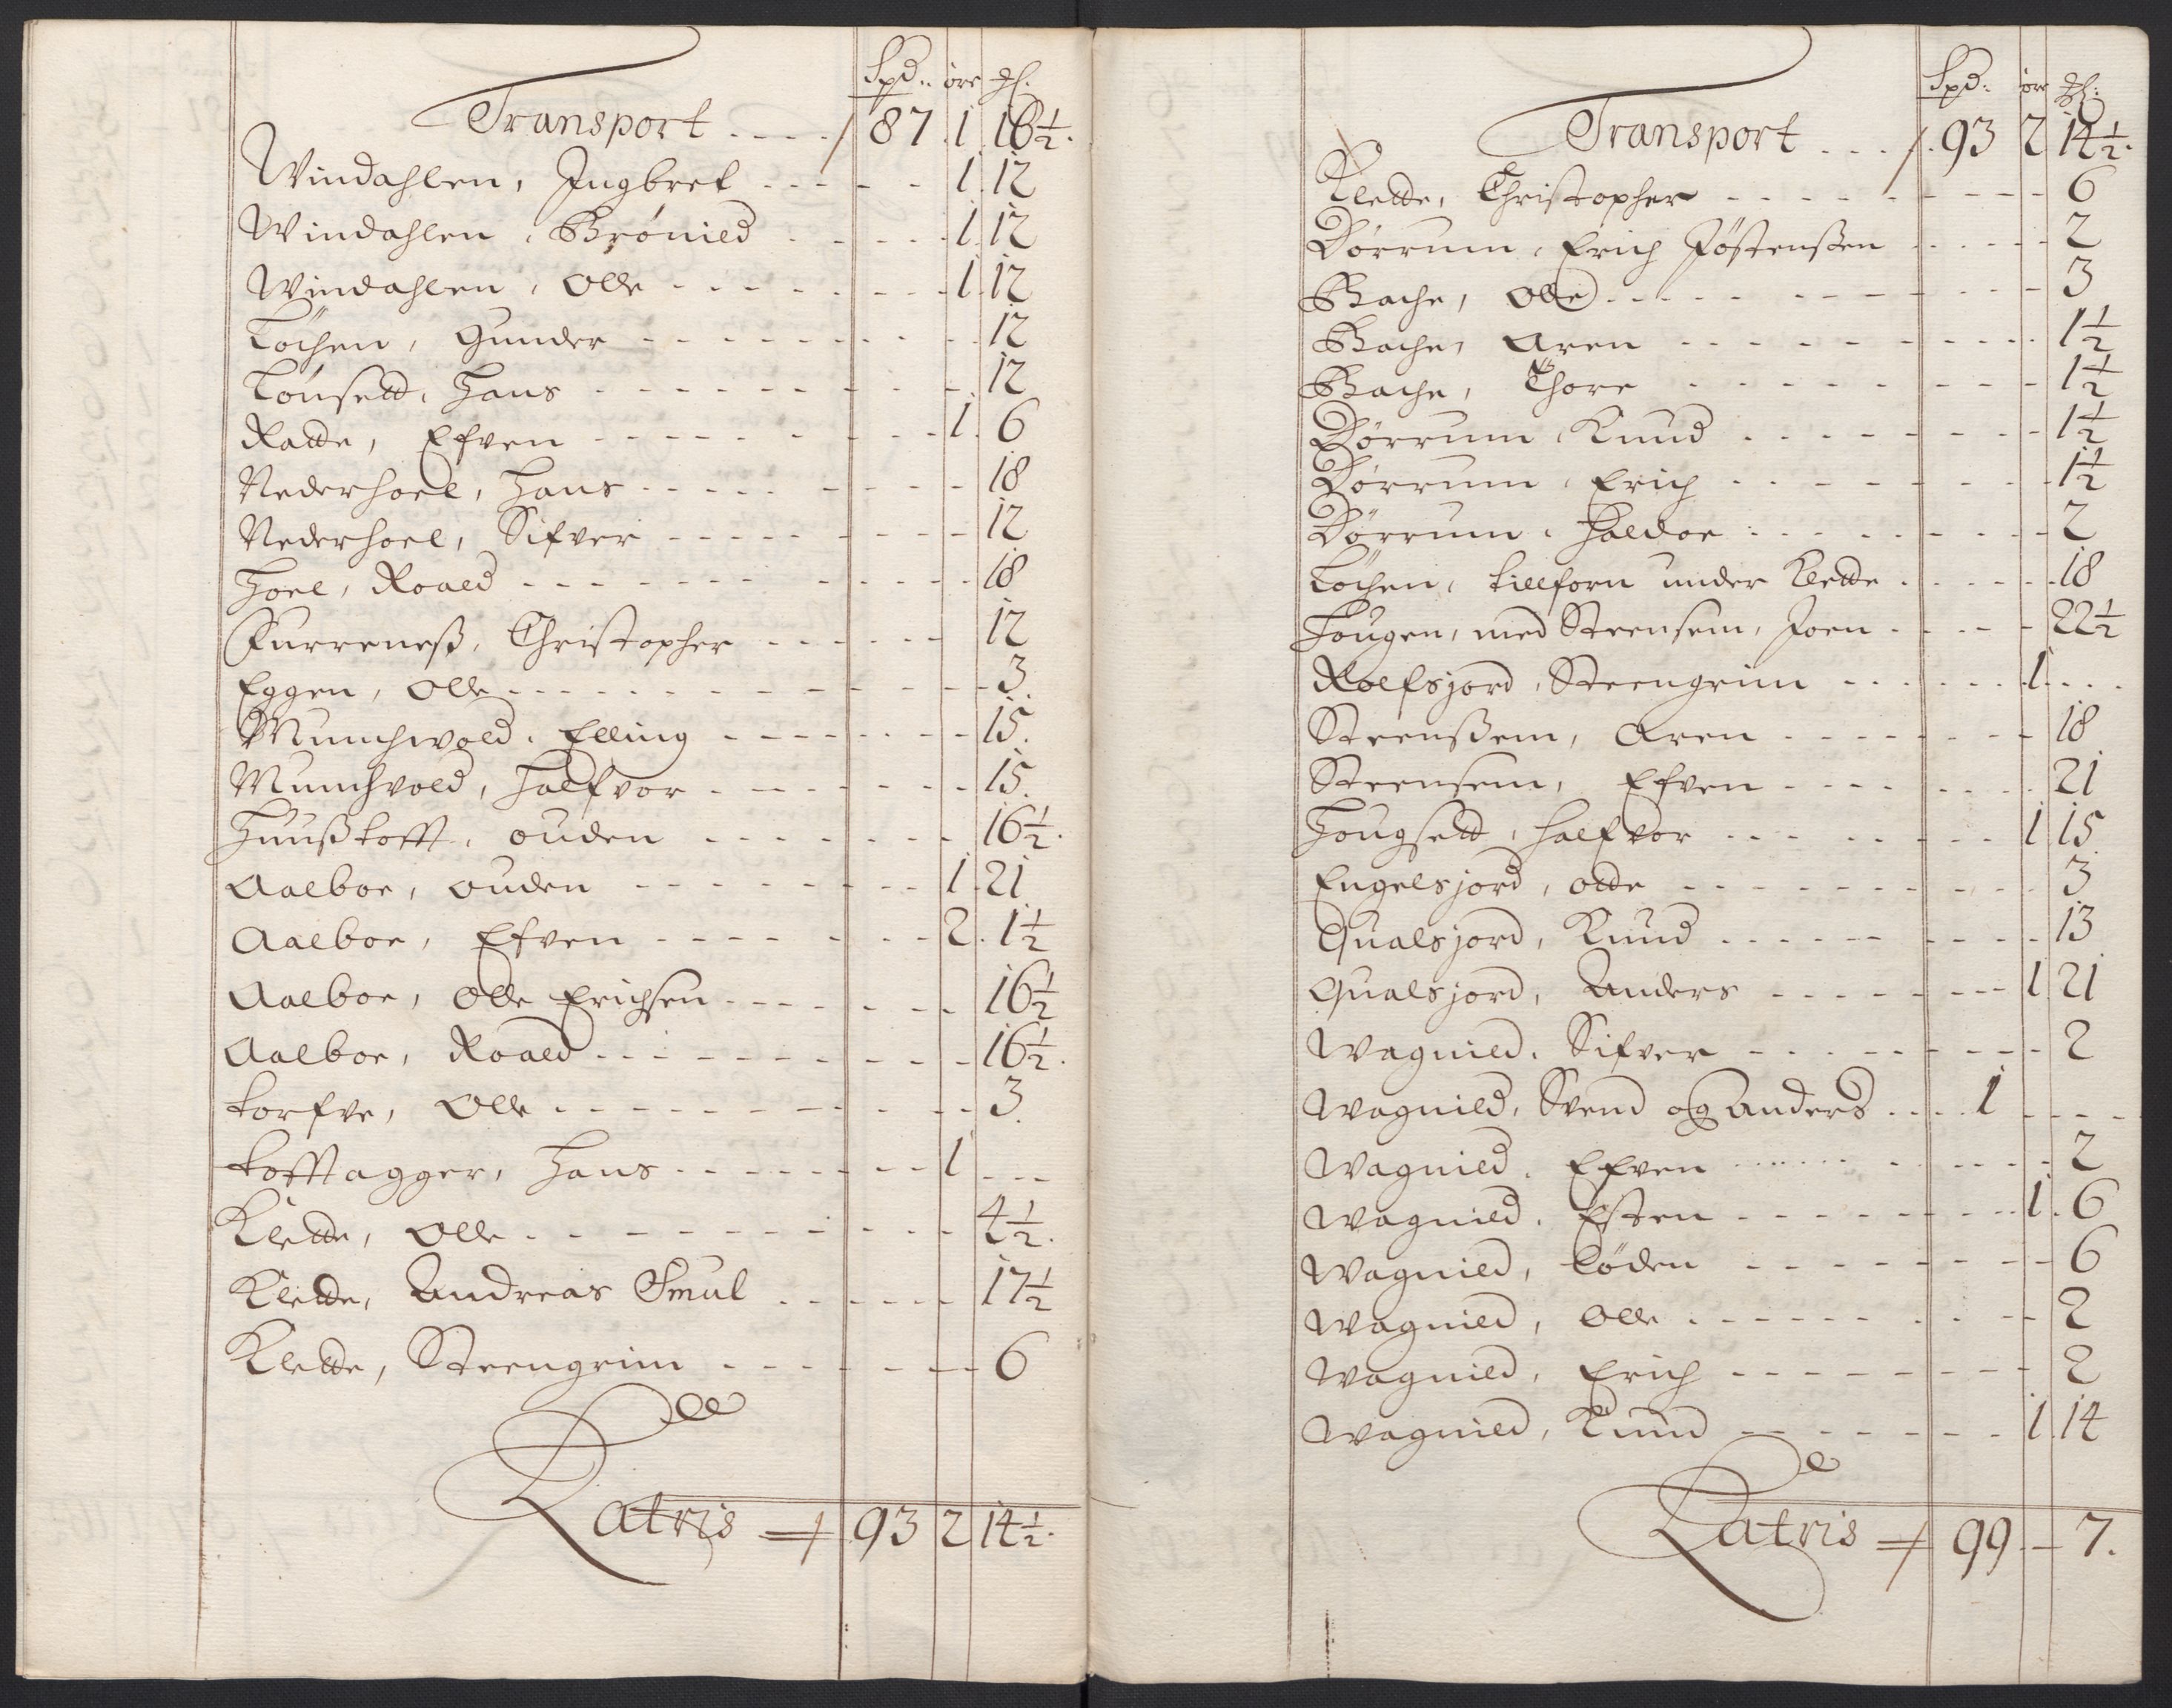 Spd: øre ₰.
Transport . . . . 87 1 16½.
Windahlen, Ingbret - - - - 1. 12
Windahlen, Brønild - - - - 1 12
Windahlen, Olle - - - - 1. 12
Løchen, Gunder - - - - 12
Lønsett, Hans - - - - 12
Ratte, Efven - - - - 1. 6
Nederhoel, Hans - - - - 18
Nederhoel, Sifver - - - - 12
Hoel, Roald - - - - 18
Furreneß, Christopher - - - - 12
Eggen, Olle - - - - 3.
Munchwold, Elling - - - - 15.
Munchvold, Halfvor - - - - 15.
Huußtofft, ouden - - - - 16½.
Aalboe, ouden - - - - 1. 21
Aalboe, Efven - - - - 2. 1½
Aalboe, Olle Erichsen - - - - 16½
Aalboe, Roald - - - - 16½.
torfve, Olle - - - - 3.
tofftagger, Hans - - - - 1 - - -
Klette, Olle - - - - 4½.
Klette, Andreas Smul - - - - 17½
Klette, Steengrim - - - - 6
Latris 93 2 14½.
Spd: øre ₰:
Transport . . . . 93 2 14½.
Klette, Christopher - - - - 6
Dørrum, Erich Jøstenßen - - - - 2
Bache, Olle - - - - 3
Bache, Aren - - - - 1½
Bache, Thore - - - - 1½
Dørrum, Knud - - - - 1½
Dørrum, Erich - - - - 1½
Dørrum, Haldor - - - - 2
Løchen, tillforn under Klette - - - - 18
Hougen, med Steensem, Joen - - - - 22½
Rolfsjord, Steengrim - - - - 1. - - -
Steenßem, Aren - - - - 18
Steensem, Efven - - - - 21
Hougsett, Halfvor - - - - 1 15.
Engelsjord, otte - - - - 3
Qualsjord, Knud - - - - 13
Qualsjord, Anders - - - - 1. 21
Wagnild, Sifver - - - - 2
Wagnild, Svend og Anders . . . . 1 - - -
Wagnild, Efven - - - - 2
Wagnild, Esten - - - - 1. 6
Wagnild, Løden - - - - 6
Wagnild, Olle - - - - 2
Wagnild, Erich - - - - 2
Wagnild, Knud - - - - 1. 14
Latris 99 - 7.